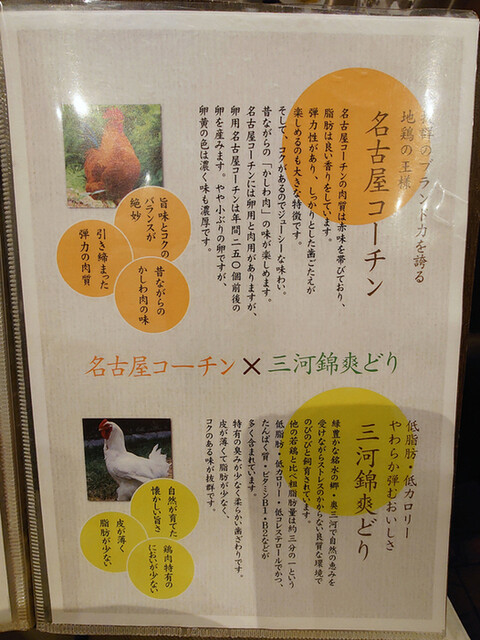 抜群のブランド力を誇る
地鶏の王様
名古屋コーチン
名古屋コーチンの肉質は赤味を帯びており、
脂肪は良い香りをしています。
弾力性があり、しっかりとした歯ごたえが
楽しめるのも大きな特徴です。
そして、コクがあるのでジューシーな味わい。
昔ながらの「かしわ肉」の味が楽しめます。
名古屋コーチンには卵用と肉用がありますが、
卵用名古屋コーチンは年間二五〇個前後の
卵を産みます。やや小ぶりの卵ですが、
卵黄の色は濃く、味も濃厚です。
旨味とコクの
バランスが
絶妙
引き締まった
弾力の肉質
昔ながらの
かしわ肉の味
名古屋コーチン×三河錦爽どり
低脂肪・低カロリー
やわらか弾むおいしさ
三河錦爽どり
緑豊かな銘水の郷・奥三河で自然の恵みを
受けながらストレスのかからない良質な環境で
のびのびと飼育されています。
他の若鶏と比べ粗脂肪量は約三分の一という
低脂肪・低カロリー・低コレステロールでかつ、
たんぱく質・ビタミンB1・B2などが
多く含まれています。
特有の臭みが少なく柔らかい歯ざわりです。
皮が薄くて脂肪が少なく、
コクのある味が抜群です。
自然が育てた
懐かしい旨さ
皮が薄く
脂肪が少ない
鶏肉特有の
においが少ない